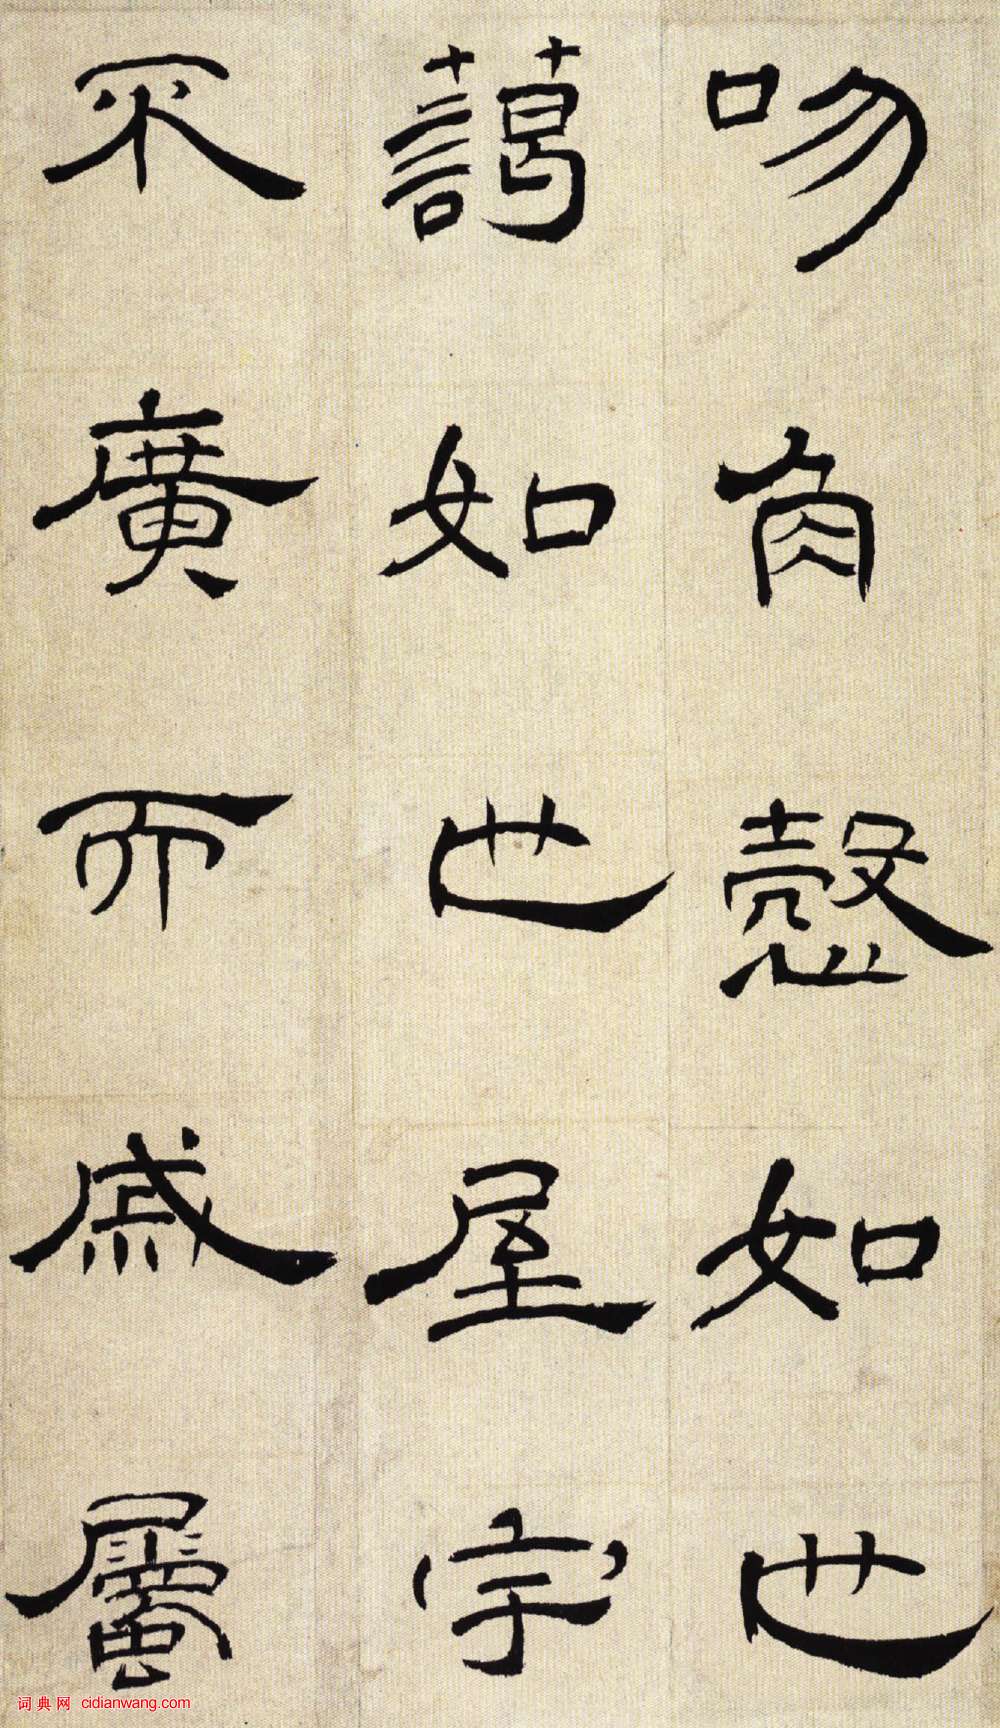 吻角慤如也
藹如也屋宇
不廣而戚屬
词典网 cidianwang.com